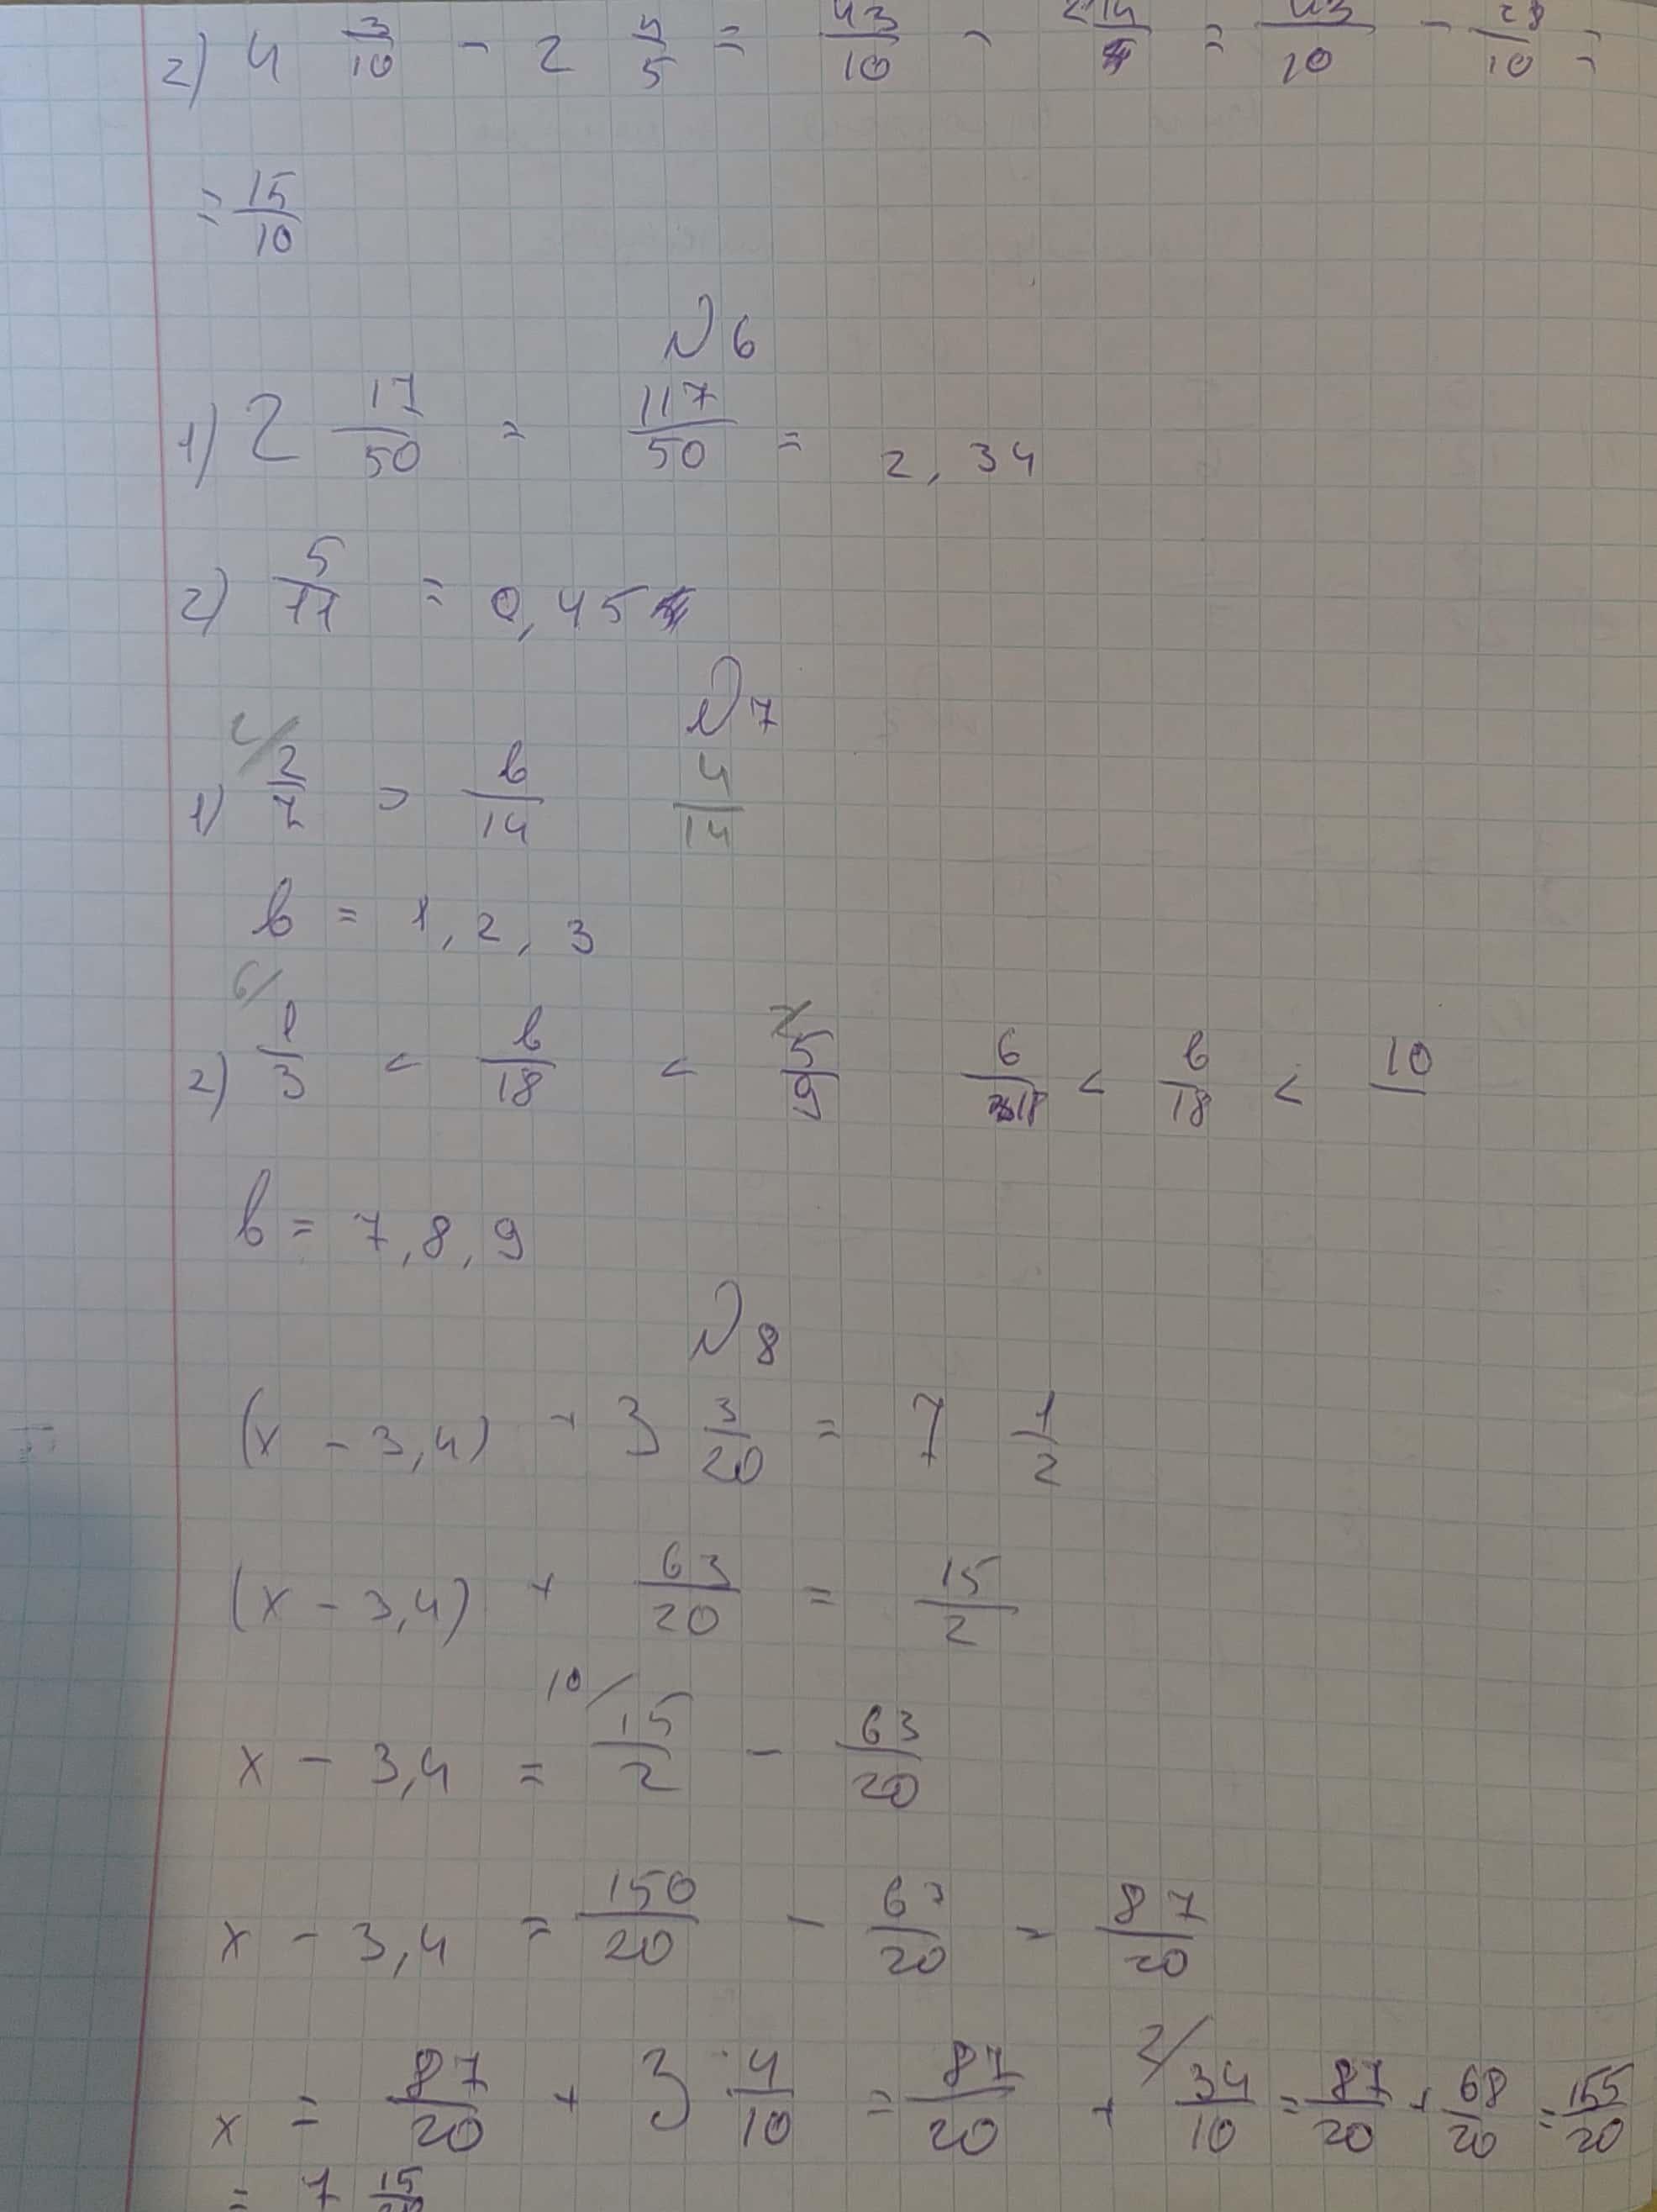 2) 4 3/10 - 2 4/5 = 43/10 - 14/5 = 43/10 - 28/10 =
= 15/10
№6
1) 2 17/50 = 117/50 = 2,34
2) 5/11 = 0,45
№7
1) 2/7 > b/14 4/14
b = 1, 2, 3
2) 1/3 < b/18 < 5/9 6/18 < b/18 < 10/
b = 7, 8, 9
№8
(x - 3,4) + 3 3/20 = 7 1/2
(x - 3,4) + 63/20 = 15/2
x - 3,4 = 10/ 15/2 - 63/20
x - 3,4 = 150/20 - 63/20 = 87/20
x = 87/20 + 3 4/10 = 87/20 + 2/ 34/10 = 87/20 + 68/20 = 155/20
= 7 15/20